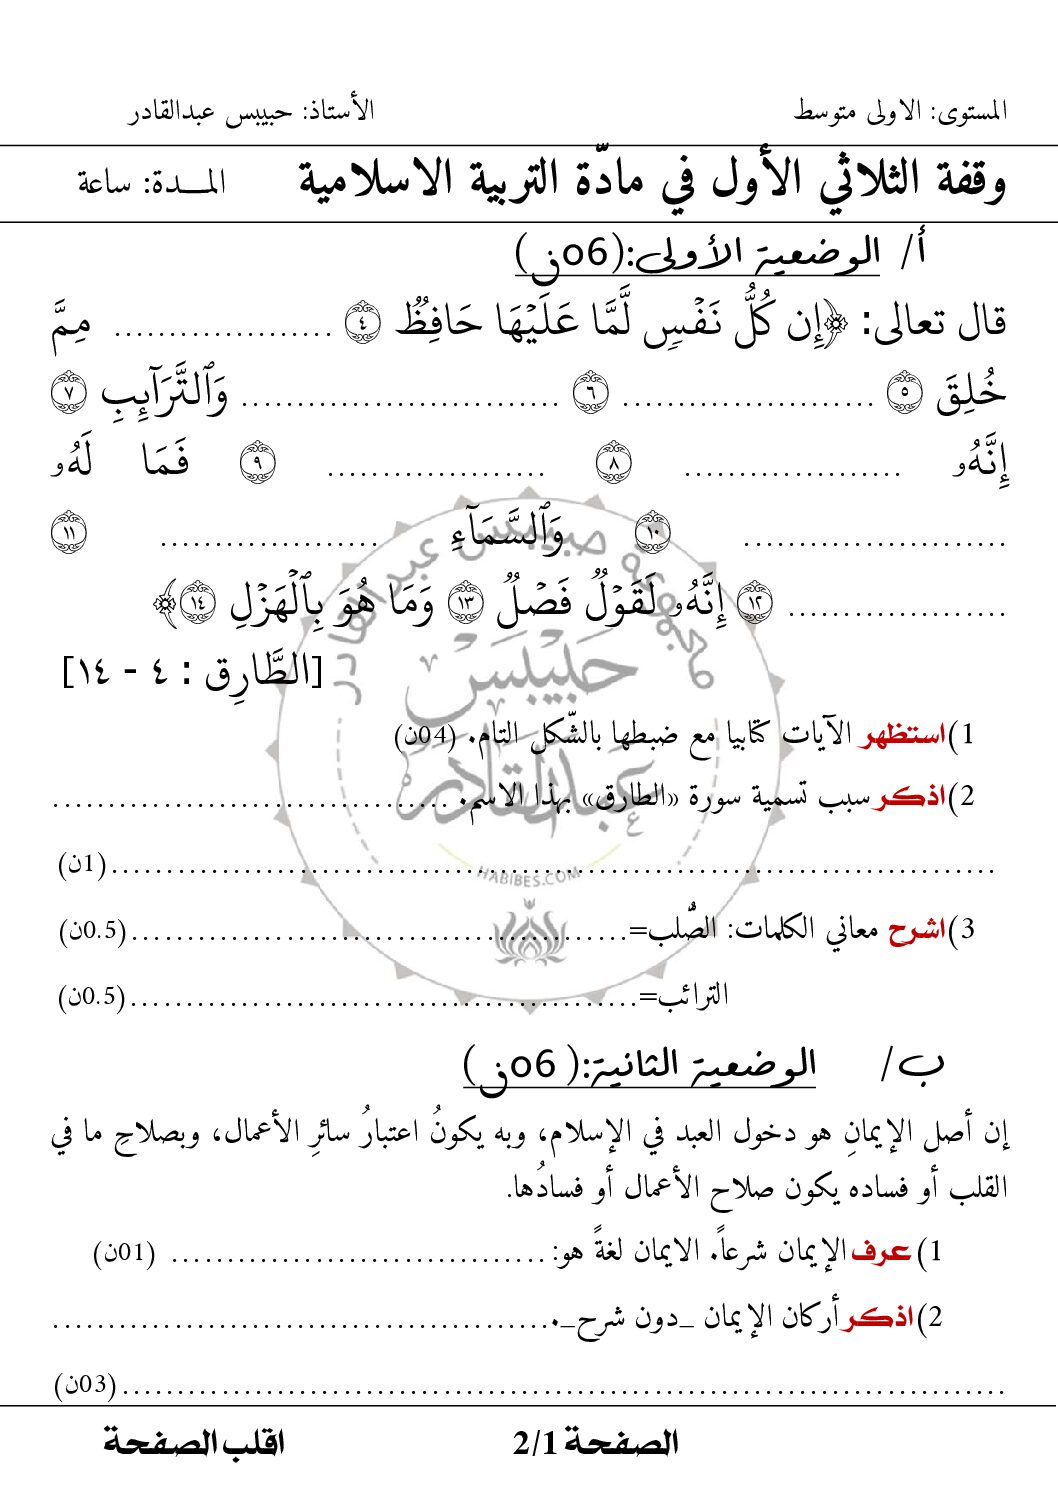 المستوى: الاولى متوسط الأستاذ: حبيبس عبدالقادر
وقفة الثلاثي الأول في مادّة التربية الاسلامية المـــدة: ساعة
أ/ الوضعية الأولى:(06ن)
قال تعالى: ﴿إِن كُلُّ نَفْسٖ لَّمَّا عَلَيْهَا حَافِظٞ ٤ .................... مِمَّ
خُلِقَ ٥ ....................... ٦ ............................. وَٱلتَّرَآئِبِ ٧
إِنَّهُۥ .................... ٨ .................... ٩ فَمَا لَهُۥ
........................ ١٠ وَٱلسَّمَآءِ .................... ١١
.................... ١٢ إِنَّهُۥ لَقَوْلٞ فَصْلٞ ١٣ وَمَا هُوَ بِٱلْهَزْلِ ١٤﴾
[الطَّارِق : ٤ - ١٤]
1)استظهر الآيات كتابيا مع ضبطها بالشّكل التام. (04ن)
2)اذكر سبب تسمية سورة «الطارق» بهذا الاسم. ....................................
................................................................................(1ن)
3)اشرح معاني الكلمات: الصُّلب=.............................................(0.5ن)
الترائب=..............................................(0.5ن)
ب/ الوضعية الثانية:(06ن)
إن أصل الإيمانِ هو دخول العبد في الإسلام، وبه يكونُ اعتبارُ سائرِ الأعمال، وبصلاحِ ما في
القلب أو فساده يكون صلاح الأعمال أو فسادُها.
1)عرف الإيمان شرعاً. الايمان لغةً هو: .................................. (01ن)
2)اذكر أركان الإيمان _دون شرح_..............................................
................................................................................(03ن)
الصفحة 2/1 اقلب الصفحة
مجموعة حبيبس عبد القادر
حبيبس
عبد القادر
HABIBES.COM